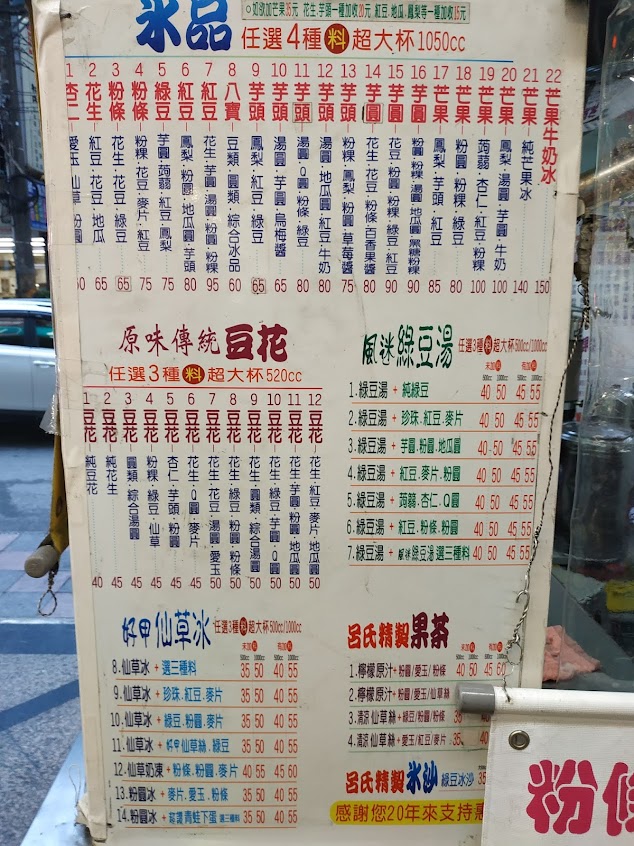 ○如欲加芒果35元 花生.芋頭一種加收20元 紅豆.地瓜.鳳梨等一種加收15元
冰品 任選4種料超大杯1050cc
1 杏仁 愛玉.仙草.粉圓
2 花生 紅豆.花豆.地瓜 60
3 粉條 花生.花豆.綠豆 65
4 粉條 粉粿.花豆.麥片.紅豆 75
5 綠豆 芋圓.蒟蒻.紅豆.鳳梨 75
6 紅豆 鳳梨.粉圓.地瓜圓.芋頭 80
7 紅豆 花生.芋圓.湯圓.粉圓.粉粿 95
8 八寶 豆類.圓類.綜合冰品 60
9 芋頭 鳳梨.紅豆.綠豆 65
10 芋頭 湯圓.芋圓.烏梅醬 65
11 芋頭 湯圓.Q圓.粉條.綠豆 80
12 芋頭 湯圓.地瓜圓.紅豆.牛奶 80
13 芋頭 粉粿.鳳梨.粉圓.草莓醬 80
14 芋圓 花生.花豆.粉條.百香果醬 90
15 芋圓 花豆.粉粿.綠豆.紅豆 90
16 芋圓 粉圓.粉粿.湯圓.地瓜圓.黑糖粉粿 90
17 芒果 鳳梨.芋頭.紅豆 85
18 芒果 粉圓.粉粿.綠豆 80
19 芒果 蒟蒻.杏仁.紅豆.粉粿 100
20 芒果 鳳梨.湯圓.芋圓.牛奶 100
21 芒果 純芒果冰 140
22 芒果牛奶冰 150
原味傳統豆花
任選3種料超大杯520cc
1 豆花 純豆花 40
2 豆花 純花生 45
3 豆花 圓類.綜合湯圓 45
4 豆花 粉粿.綠豆.仙草 45
5 豆花 杏仁.芋頭.粉圓 45
6 豆花 花生.Q圓.麥片 45
7 豆花 花生.花豆.湯圓.愛玉 50
8 豆花 花生.綠豆.粉圓.粉條 50
9 豆花 花生.圓類.綜合湯圓 50
10 豆花 花生.綠豆.芋圓.Q圓 50
11 豆花 花生.芋圓.粉圓.地瓜圓 50
12 豆花 花生.紅豆.麥片.地瓜圓 50
風迷綠豆湯 任選3種料超大杯500cc/1000cc
未加料 有加料
500cc 1000cc 500cc 1000cc
1.綠豆湯+純綠豆 40 50 45 55
2.綠豆湯+珍珠.紅豆.麥片 40 50 45 55
3.綠豆湯+芋圓.粉圓.地瓜圓 40 50 45 55
4.綠豆湯+紅豆.麥片.粉圓 40 50 45 55
5.綠豆湯+蒟蒻.杏仁.Q圓 40 50 45 55
6.綠豆湯+紅豆.粉條.粉圓 40 50 45 55
7.綠豆湯+風迷綠豆湯選三種料 40 50 45 55
好甲仙草冰 任選3種料超大杯500cc/1000cc
未加料 有加料
500cc 1000cc 500cc 1000cc
8.仙草冰+選三種料 35 50 40 55
9.仙草冰+珍珠.紅豆.麥片 35 50 40 55
10.仙草冰+綠豆.粉圓.麥片 35 50 40 55
11.仙草冰+好甲仙草絲.綠豆 35 50 40 55
12.仙草奶凍+粉條.粉圓.麥片 40 55 45 60
13.粉圓冰+麥片.愛玉.粉條 35 50 40 55
14.粉圓冰+蒟蒻青蛙下蛋選三種料 35 50 40 55
呂氏精製果茶
未加料 有加料
500cc 1000cc 500cc 1000cc
1.檸檬原汁+粉圓/愛玉/粉條 35 50 45 60
2.檸檬原汁+粉圓/愛玉/仙草絲
3.清涼仙草絲+綠豆/粉圓/粉條
4.清涼仙草絲+愛玉/紅豆/麥片
呂氏精製冰沙 綠豆冰沙 35
感謝您20年來支持惠
粉條